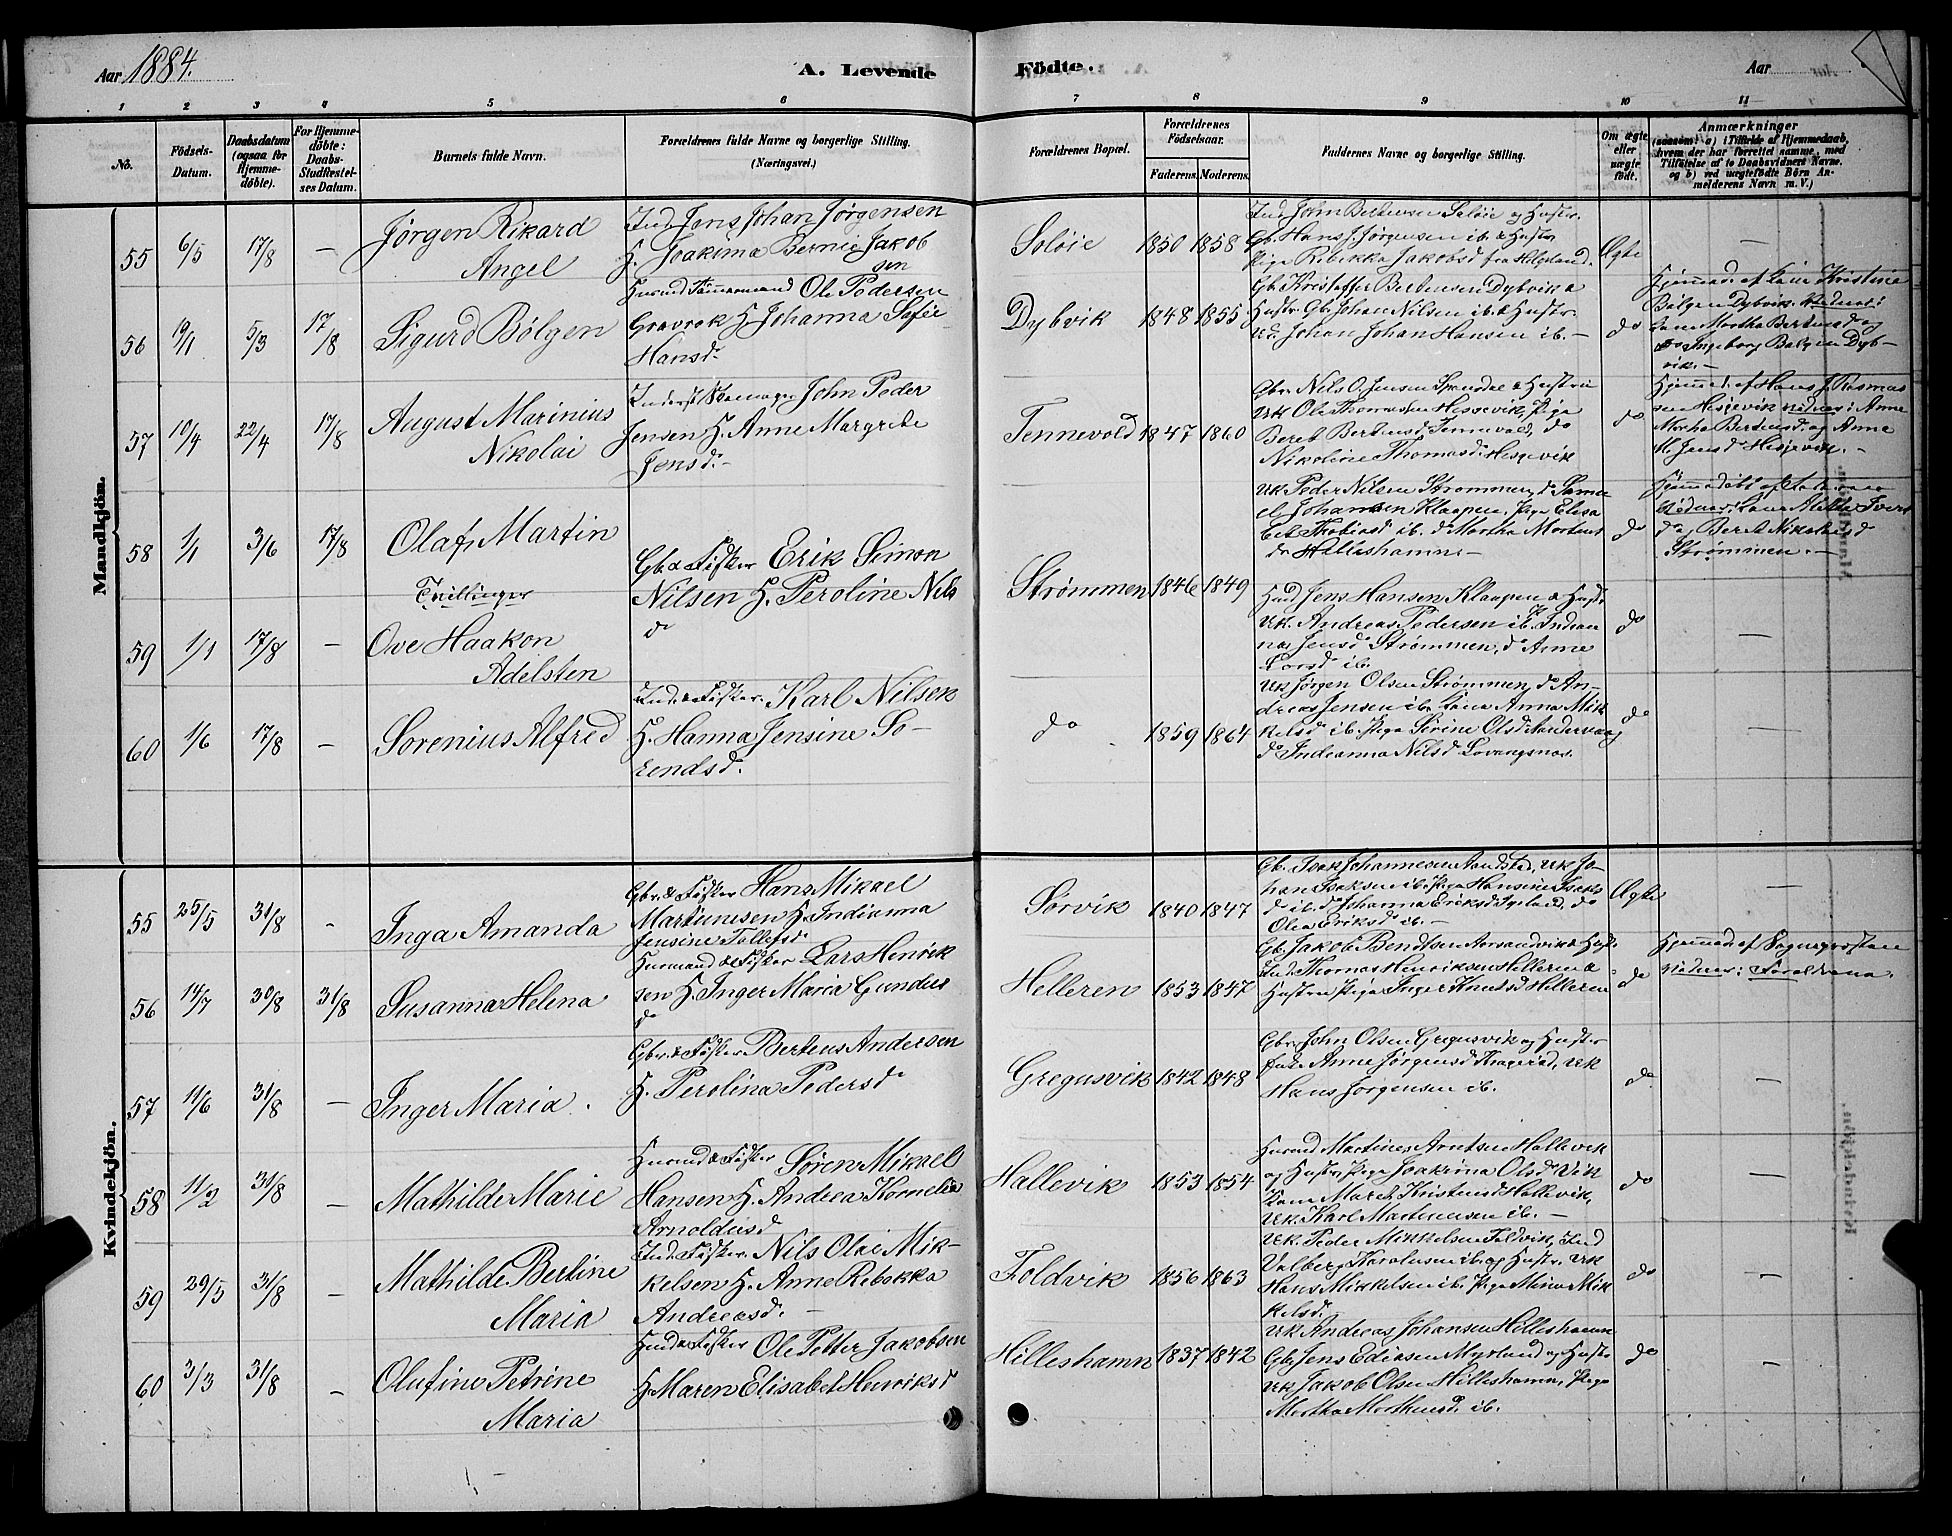 Aar 1884.
A. Levende
Fødte.
Aar
1 2 3 4 5 6 7 8 9 10 11
No.
Fødsels-Datum.
Daabsdatum (ogsaa for Hjemmedøbte).
For Hjemmedøbte: Daabs-Stadfæstelses Datum.
Barnets fulde Navn.
Forældrenes fulde Navne og borgerlige Stilling.
(Næringsvei.)
Forældrenes Bopæl.
Forældrenes Fødselsaar.
Faderens. Moderens.
Faddernes Navne og borgerlige Stilling.
Om ægte eller uægte født.
Anmærkninger
(saasom: a) i Tilfælde af Hjemmedaab, hvem der har forrettet samme, med Tilføielse af to Daabsvidners Navne, og b) ved uægtefødte Børn Anmelderens Navn m. V.)
Mandkjøn.
55 6/5 17/8 —
Jørgen Rikard
Angel
Ind. Jens Johan Jørgensen
H. Joakima Bernie Jakob
sen
Soløie 1850 1858
Ind. John Bertensen Soløie og Hustr.
Gb. Hans J. Jørgensen ib. & Hustr.
Pige Rebikka Jakobsd fra Helgeland.
Ægte —
56 19/1 5/3 17/8
Sigurd Bølgen
Husmd Tømmermand Ole Pedersen
Gravrok H. Johanna Sofie
Hansd.
Dybvik 1848 1855
Gb. Kristoffer Bertensen Dybvik &
Hustr. Gb. Johan Nilsen ib. & Hustr.
Uk. Johan Johan Hansen ib. —
do
Hjemmed. af Kone Kristine
Bølgen Dybvik. Vidner:
Kone Martha Bertensd og
do Ingeborg Bølgen Dyb-
vik. —
57 10/4 22/4 17/8
August Marinius
Nikolai
Inderst Skomager John Peder
Jensen H. Anne Margrete
Jensd. —
Tennevold 1847 1860
Gbr. Nils O. Jensen Spansdal & Hustru
Uk Ole Thomassen Hessevik, Pige
Beret Bertensd Tennevold, do
Nikoline Thomasd. Hessevik
do
Hjemmed. af Hans J. Rasmus
sen Hesjevik vidner: Anne
Martha Bertensd. og Anne
M. Jensd Hesjevik. —
58 1/1 3/6 17/8
Olaf Martin
Tvillinger
Gb. & Fisker Erik Simon
Nilsen H. Peroline Nils
d
Strømmen 1846 1849
Uk Peder Nilsen Strømmen, do
el Johansen Klaapen, Pige Elisa
bet Thobiasd ib. do Martha Mortens
d Hilleshamn —
do
Hjemmedøbt af
Vidner: Kone Iver
d og Beret Nikolaisd
Strømmen. —
59 1/1 17/8 —
Ove Haakon
Adelsten
Husmd Jens Hansen Klaapen & Hustr.
Uk. Andreas Pedersen ib. P. Indian
na Jensd Strømmen, do Anne
Larsd ib.
do —
60 1/6 17/8 —
Sorenius Alfred
Ind. & Fisker. Karl Nilsen
H. Hanna Jensine So-
rendsd.
do 1859 1864
Uk Jørgen Olsen Strømmen, do An-
dreas Jensen ib. Kone Anna Mik
kelsd ib. Pige Serine Olsd Sandervaag
do Indianna Nilsd Lavangsnes.
do —
Kvindekjøn.
55 25/5 31/8 -
Inga Amanda
Gbr. & Fisker Hans Mikael
Martinusen H. Indianna
Jensine Tollefsd.
Sørvik 1840 1847
Gb. Isak Johannesen Sandstad, Uk Jo-
han Isaksen ib. Pige Hansine Isaks
d ib. do Johanna Eriksd, do
Olea Eriksd ib. —
Ægte —
56 14/7 30/8 31/8
Susanna Helena
Husmand & Fisker Lars Henrik
sen H. Inger Maria Gundus
d
Helleren 1853 1847
Gb. Jakob Bendtsen Aarsandvik & Hust.
Ind. Thomas Henriksen Helleren &
Hustru Pige Inger Knutsd Helleren
do
Hjemmed. af Sognepræsten
vidner: Forældrene.
57 11/6 31/8 —
Inger Maria.
Gbr. & Fisker. Berteus Andersen
H. Perolina Pedersd.
Gregusvik 1842 1848
Gbr. John Olsen Gregusvik og Hustr
Enke Anne Jørgensd Kragerid, Uk
Hans Jørgensen ib.
do —
58 11/2 31/8 —
Mathilde Marie
Husmd & Fisker Søren Mikael
Hansen H. Andrea Kornelia
Arnoldusd
Hallevik 1853 1854
Husmd Martines Arntsen Hallevik
og Hustr. Pige Joakrima Olsd Vik
Kone Maret Kristensd Hallevik,
Uk. Karl Martenesen ib. —
do —
59 29/5 31/8 —
Mathilde Bertine
Maria
Ind. Fisker. Nils Olai Mik-
kelsen H. Anne Rebekka
Andreasd. —
Foldvik 1856 1863
Uk. Peder Mikkelsen Foldvik, Ind
Valberg Karolusen ib. og Hustr. Uk
Hans Mikkelsen ib. Pige Mina Mik
kelsd. —
do —
60 3/3 31/8 —
Olufine Petrine
Maria
Husmd & Fisker Ole Petter Jakobsen
H. Maren Elisabet Henriksd
Hilleshamn 1837 1842
Uk Andreas Johansen Hilleshamn
Gb. Jens Ediasen Myrland og Hustr
Uk Jakob Olsen Hilleshamn, Pige
Martha Marthinsd. ib.
do —